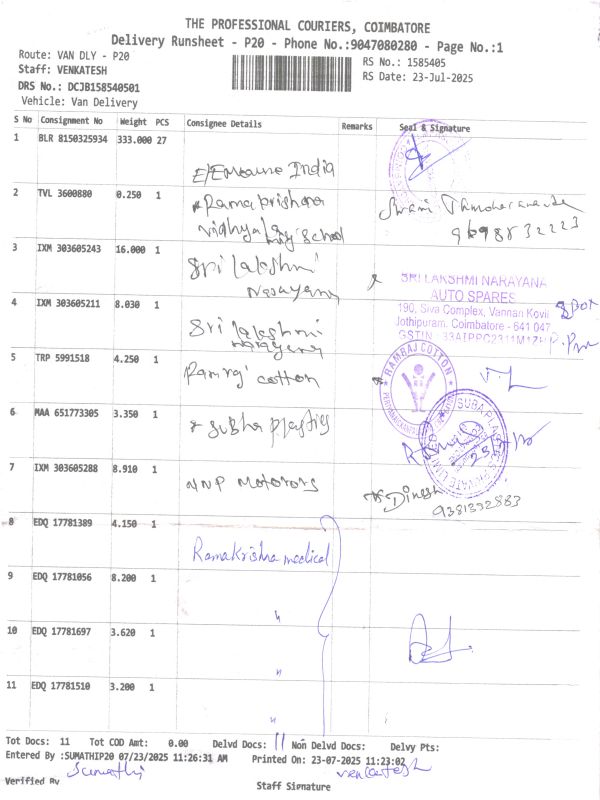 THE PROFESSIONAL COURIERS, COIMBATORE
Delivery Runsheet - P20 - Phone No.:9047080280 - Page No.:1
Route: VAN DLY - P20
Staff: VENKATESH
DRS No.: DCJB158540501
Vehicle: Van Delivery
RS No.: 1585405
RS Date: 23-Jul-2025
S No Consignment No Weight PCS Consignee Details Remarks Seal & Signature
1 BLR 8150325934 333.000 27
India
2 TVL 3600880 0.250 1 Ramakrishna
School
9698832223
3 IXM 303605243 16.000 1 Sri Lakshmi
Narayana
SRI LAKSHMI NARAYANA
AUTO SPARES
190, Siva Complex, Vannan Kovil
Jothipuram, Coimbatore - 641 047
4 IXM 303605211 8.030 1 Sri Lakshmi
Narayana
5 TRP 5991518 4.250 1 Ramraj cotton
RAMRAJ COTTON
6 MAA 651773305 3.350 1 Subha plastics
7 IXM 303605288 8.910 1 NNP Motors
Dinesh
9381392883
8 EDQ 17781389 4.150 1
Ramakrishna medical
9 EDQ 17781056 8.200 1
"
10 EDQ 17781697 3.620 1
"
11 EDQ 17781510 3.200 1
"
Tot Docs: 11 Tot COD Amt: 0.00 Delvd Docs: 11 Non Delvd Docs: Delvy Pts:
Entered By :SUMATHIP20 07/23/2025 11:26:31 AM Printed On: 23-07-2025 11:23:02
Sumathi Vencatesh
Verified By Staff Signature